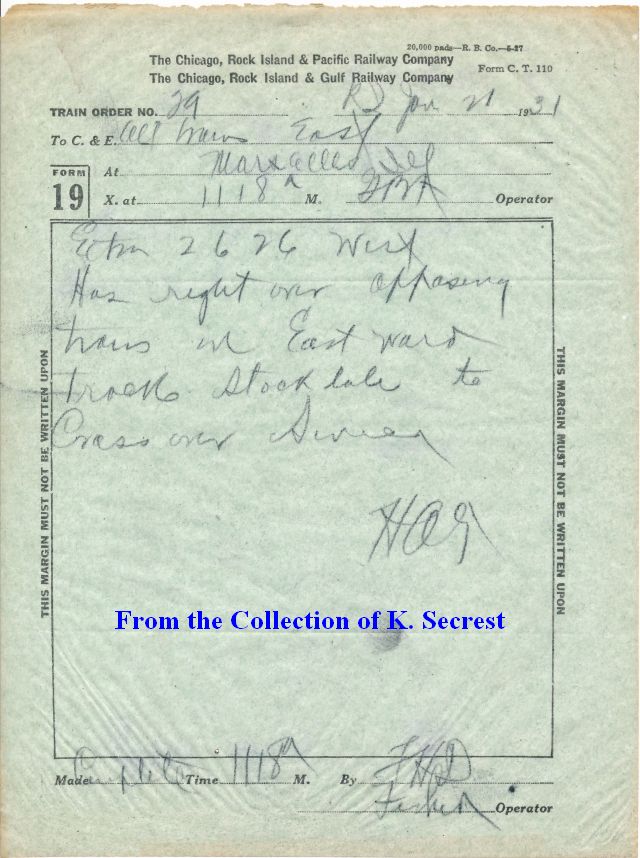 20,000 pads—R. B. Co.—5-27
The Chicago, Rock Island & Pacific Railway Company
The Chicago, Rock Island & Gulf Railway Company
Form C. T. 110
TRAIN ORDER NO. 29 Jan 21 1931
To C. & E. All trains East
FORM 19
At Marseilles Ill
X. at 1118 A M. Operator
Extra 2626 West
Has right over opposing
trains on East ward
track Stockdale to
Cross over Seneca
HAG
THIS MARGIN MUST NOT BE WRITTEN UPON
THIS MARGIN MUST NOT BE WRITTEN UPON
From the Collection of K. Secrest
Made Complete Time 1118 A M. By
Fisher Operator